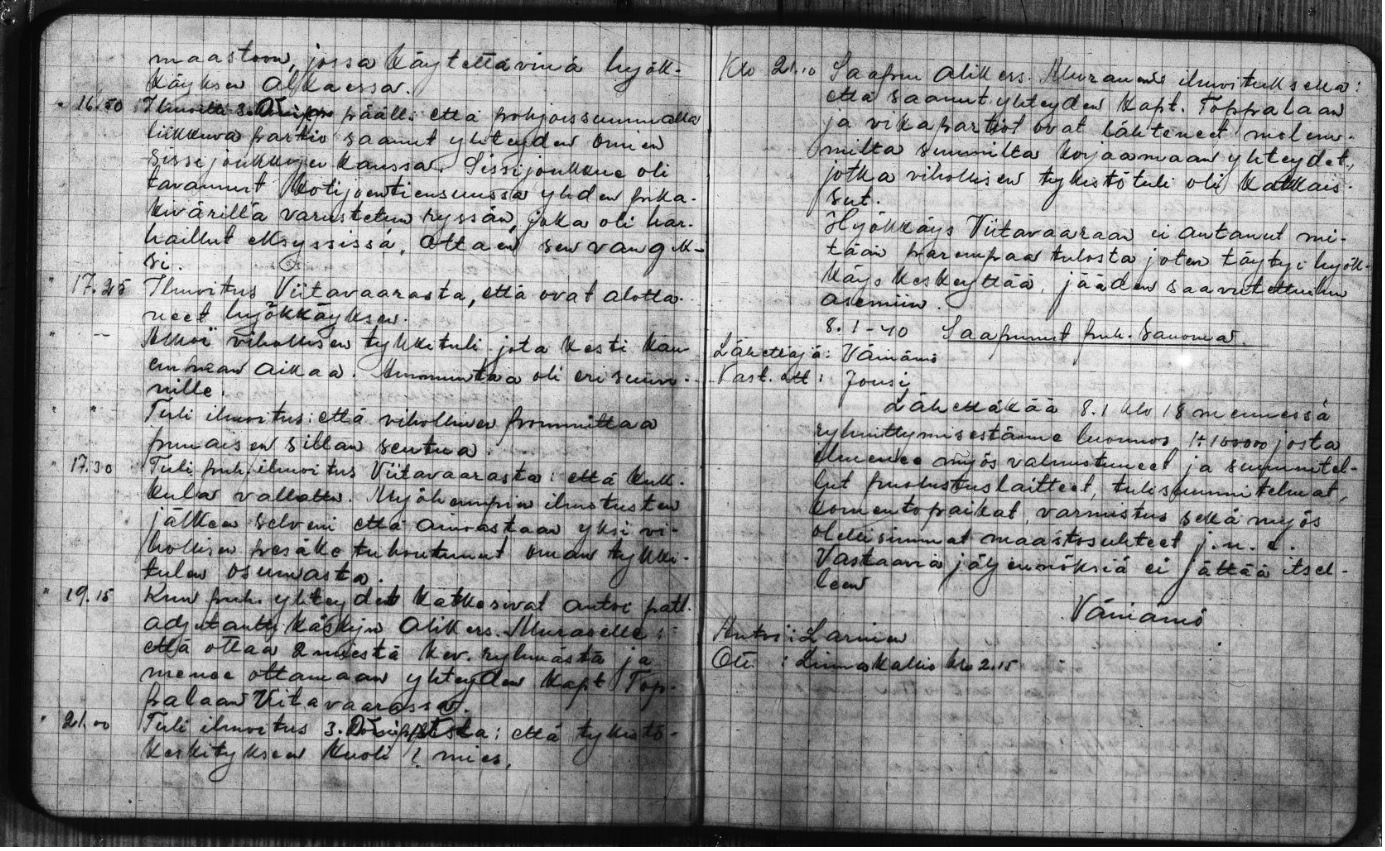 maastoon, jossa käytettävinä hyök-
käyksen alkaessa.
" 16.50 Ilmoitti 3. päälli. että pohjoissuunnalla
liikkuva partio saanut yhteyden omen
sissijoukkojen kanssa. Sissijoukkue oli
tavannut Kotijoentiensuussa yhden pika-
kiväärillä varustetun ryssän, joka oli har-
haillut eksyssissä, ottaen sen vangik-
si.
" 17.25 Ilmoitus Viitavaarasta, että ovat alotta-
neet hyökkäyksen.
" — Alkoi vihollisen tykkituli jota kesti kau
emman aikaa. Ammuntaa oli eri suun-
nille.
" " Tuli ilmoitus: että vihollinen pommittaa
punaisen sillan seutua.
" 17.30 Tuli puh. ilmoitus Viitavaarasta: että kuk-
kula vallattu. Myöhempien ilmotusten
jälkeen selveni että ainoastaan yksi vi-
hollisen pesäke tuhoutunut oman tykki-
tulen osumasta.
" 19.15 Kun puh. yhteydet katkesivat antoi patl.
adjutantti käskyn Alikers. Muraselle:
että ottaa 2 miestä kev. ryhmästä ja
menee ottamaan yhteyden Kapt. Top-
palaan Viitavaarassa.
" 21.00 Tuli ilmoitus 3. : että tykistö-
keskityksen kuoli 1 mies.
Klo 21.10 Saapuu Alikers. Muranen ilmoituksella:
että saanut yhteyden Kapt. Toppalaan
ja vikapartiot ovat lähteneet molem-
milta suunnilta korjaamaan yhteydet,
jotka vihollisen tykistötuli oli katkais-
sut.
Hyökkäys Viitavaaraan ei antanut mi-
tään parempaa tulosta joten täytyi hyök-
käys keskeyttää, jääden saavutettuihin
asemiin.
8.1-40 Saapunut puh. sanoma.
Lähettäjä: Väinämö
Vast. ott: Jousi
Lähettäkää 8.1 klo 18 mennessä
ryhmittymisestänne luonnos 1:100000 josta
ilmenee myös valmistuneet ja suunnitel-
lut puolustuslaitteet, tulisuunnitelmat,
komentopaikat, varmistus sekä myös
olellisimmat maastosuhteet j.n.e.
Vastaavia jäljennöksiä ei jättää itsel-
leen
Väinämö
Antoi: Larinen
Otti : Linnakallio klo 2.15